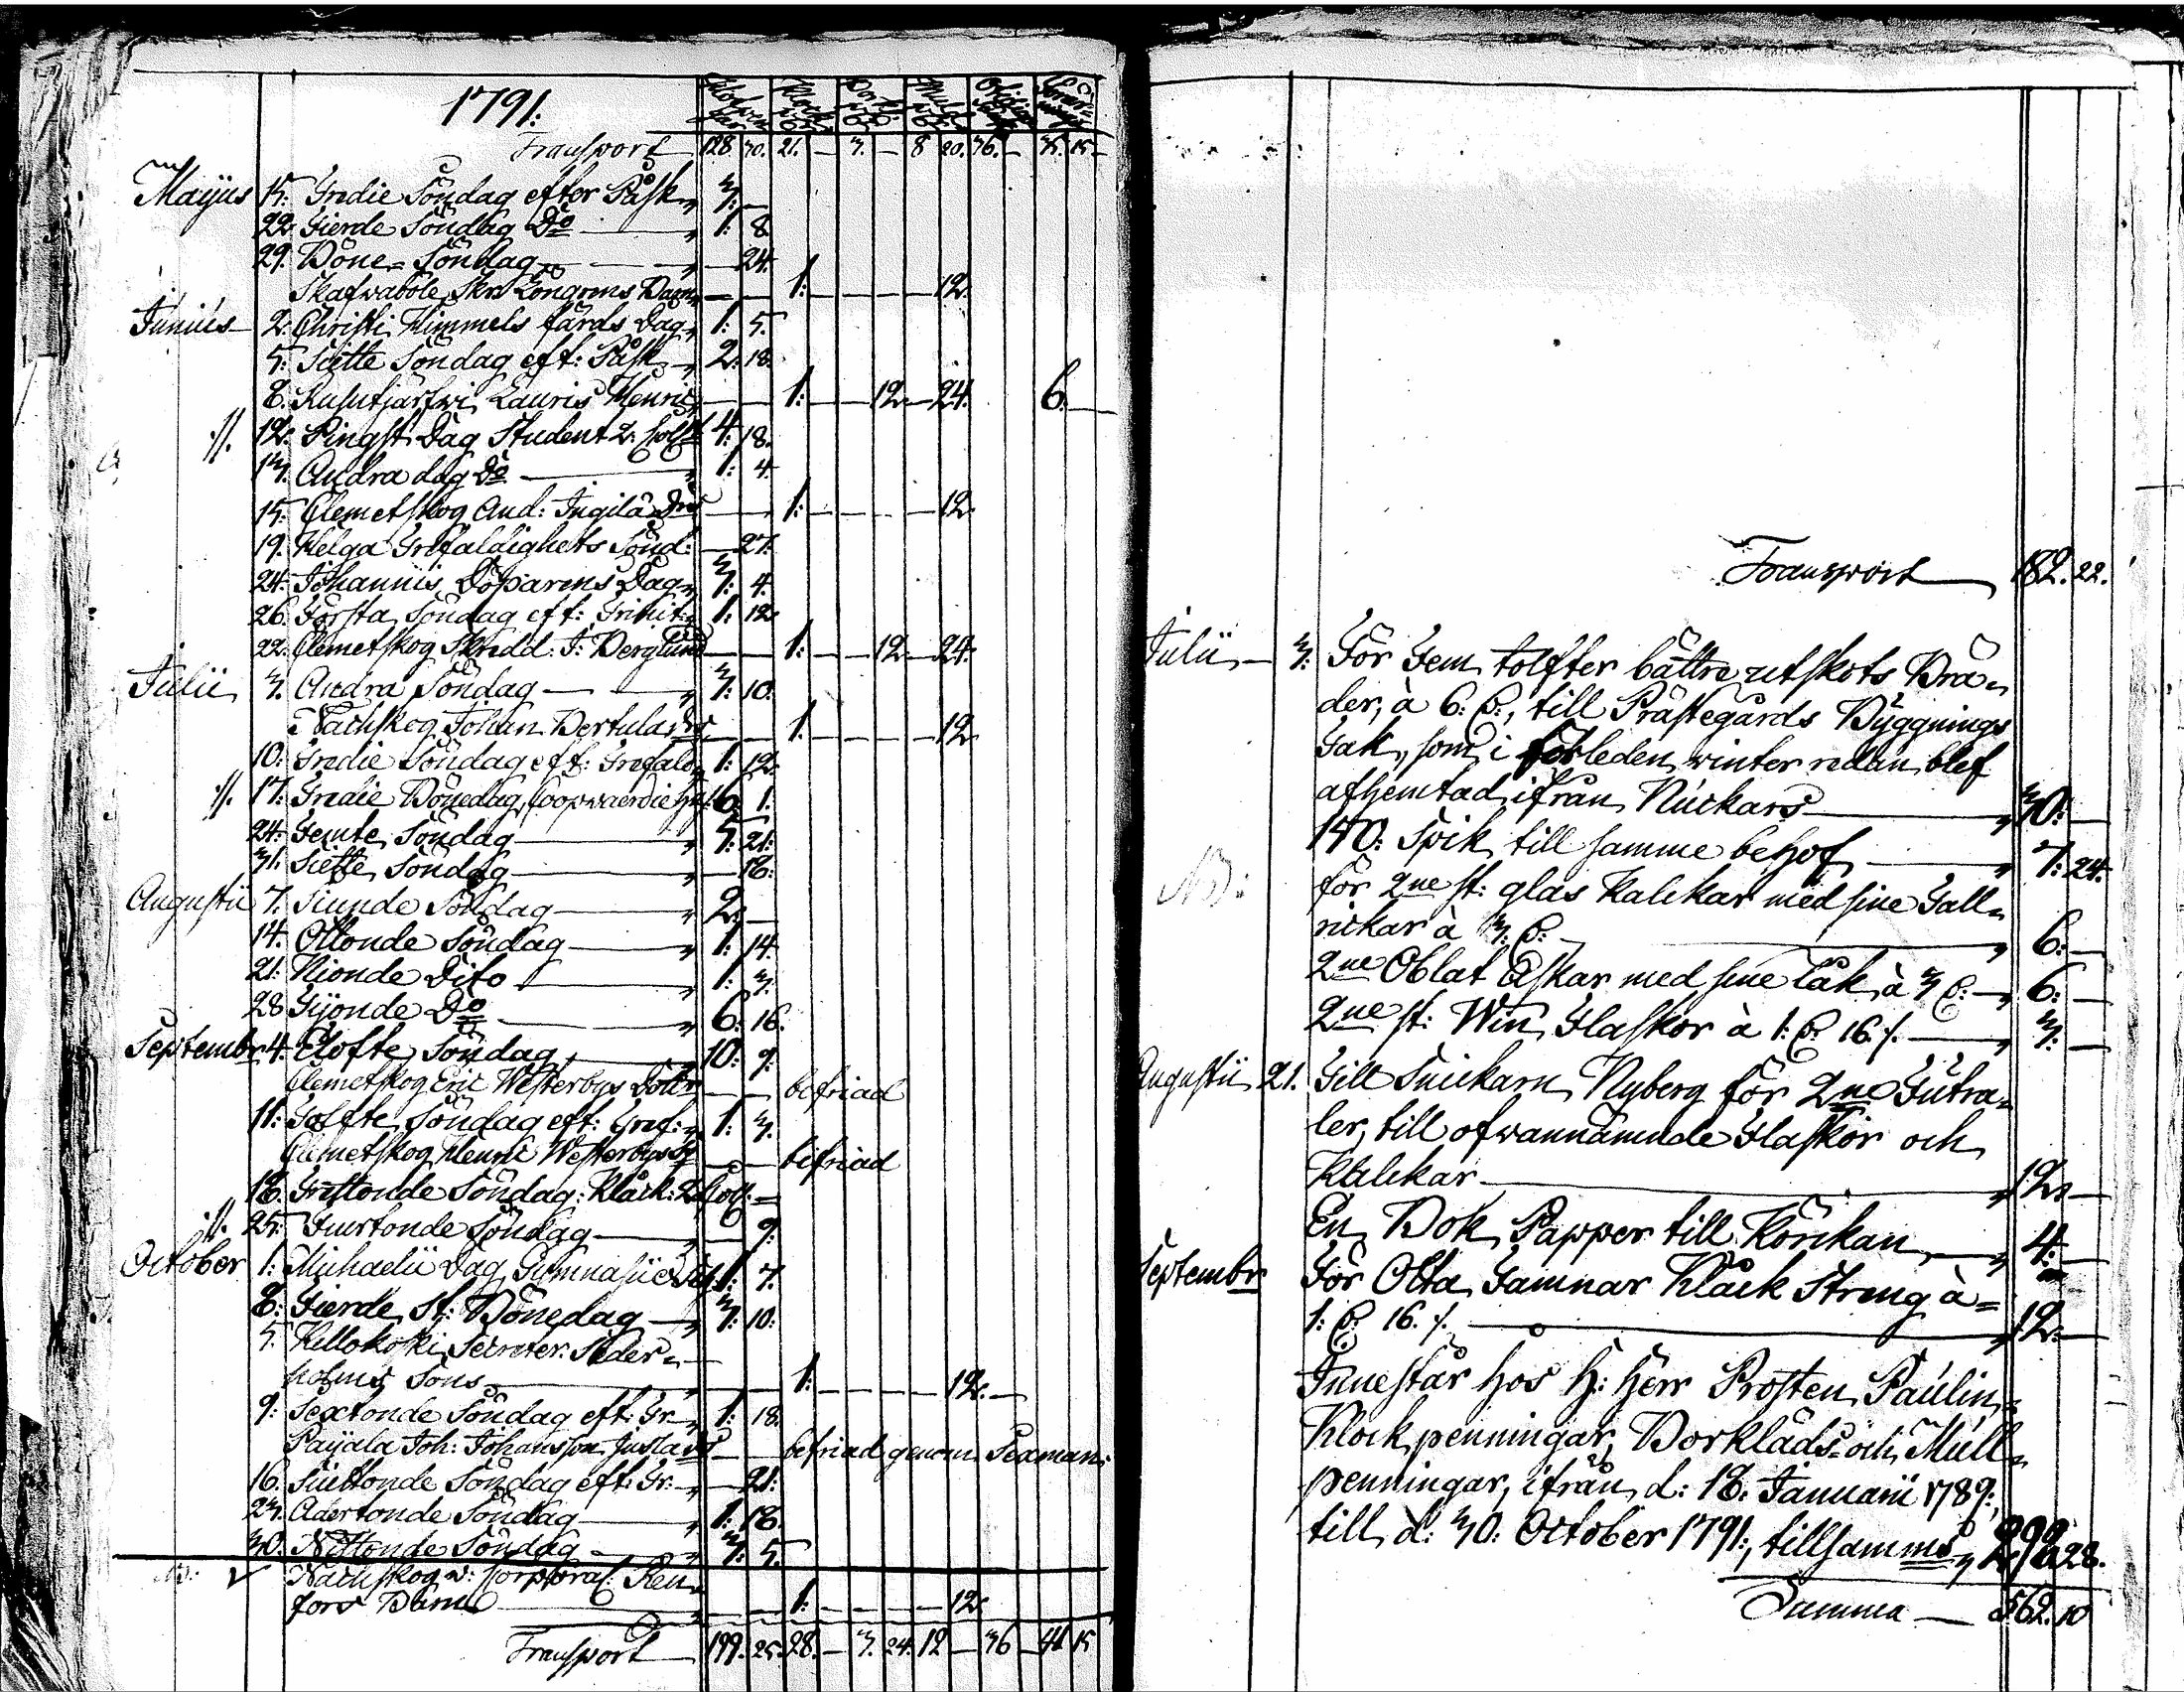 1791:
Transport 128 30. 21. — 3. — 8 20. 36. — 35. 15
Maÿus 15. Tredie Söndag efter Påsk 3: —
22. Fierde Söndag Do 1: 8
29. Böne-Söndag — 24.
Skafvaböle Skr: Barn — — 1: — — — — 12.
Junius 2. Christi Himmels färds Dag 1: 5.
5. Siette Söndag eft: Påsk 2: 18.
8. Lauris Henric — — 1: — — 12 — 24. 6. —
·//. 12. Pingst Dag Student 4: 18.
13. Andra dag Do 1: 4.
15. Clemetskog And: Ingilä — 1: — — — — 12.
19. Helga Trefaldighets Sönd: — 27.
24. Johannis Döparens Dag 3: 4.
26. Första Söndag eft: Trinit: 1: 12
22. Clemetskog Skredd: J: Berglund — — 1: — — 12 — 24.
Julii 3. Andra Söndag 3: 10.
Nachskog Johan Bertula — 1: — — — — 12
10. Tredie Söndag eft: Trefald 1: 12.
·//. 17. Tredie Bönedag, Coopvaerdie 6. 1.
24. Femte Söndag 5: 21.
31. Siette Söndag — 18.
Augustii 7. Siunde Söndag 2. —
14. Ottonde Söndag 1: 14.
21. Nionde Dito 1: 3.
28 Tijonde Do 6. 16.
Septembr 4. Elofte Söndag 10: 9.
Clemetskog Eric Westerbys Dotter — — befriad
11: Tolfte Söndag eft: Tref: 1: 3.
Clemetskog Henric Westerbys — — befriad
18. Trettonde Söndag: Kläck:
·//. 25. Fiortonde Söndag — 9.
October 1: Michaelii Dag Gymnasii 1: 7.
8: Fierde St: Bönedag 3: 10:
5. Kellokoski Secreter: Seder-
holms Sons — 1: — — — — 12. —
9: Sextonde Söndag eft: Tr. 1: 18.
Payala Joh: Johansson — befriad genom Sexman:
16. Siuttonde Söndag eft: Tr: — 21:
23. Adertonde Söndag 1: 18.
30. Nittonde Söndag 3: 5.
Nachskog v: Corporal: Ren-
fors Barn — 1: — — — — 12.
Transport 199. 25. 28. — 3. 24. 12 — 36 — 41 15
Transport 182. 22.
Julii 3: För Fem tolfter bättre utskots Brä-
der, à 6. , till Prästegårds Byggnings
Tak, som i förleden winter redan blef
afhemtad ifrån Nickars 30: —
150: Spik till samme behof 7: 24.
NB: för 2ne st: glas Kalckar med sine Tall-
rickar à 3. 6: —
2ne Oblat Askar med sine Låk à 3 6: —
2ne st: Win Flaskor à 1: 16. 3: —
Augustii 21. Till Snickarn Nyberg för 2ne Futra-
ler, till ofwannämnde Flaskor och
Kalckar 12. —
En Bok Papper till Körckan 4: —
Septembr För Otta Famnar Kläck Streng à =
1: 16. 12. —
Innestår hos H: Herr Prosten Paulin,
Klockpenningar, Borkläds- och Mull-
penningar, ifrån d: 18. Januarii 1789;
till d: 30: October 1791:, tillsammans 299. 28.
Summa — 562. 10